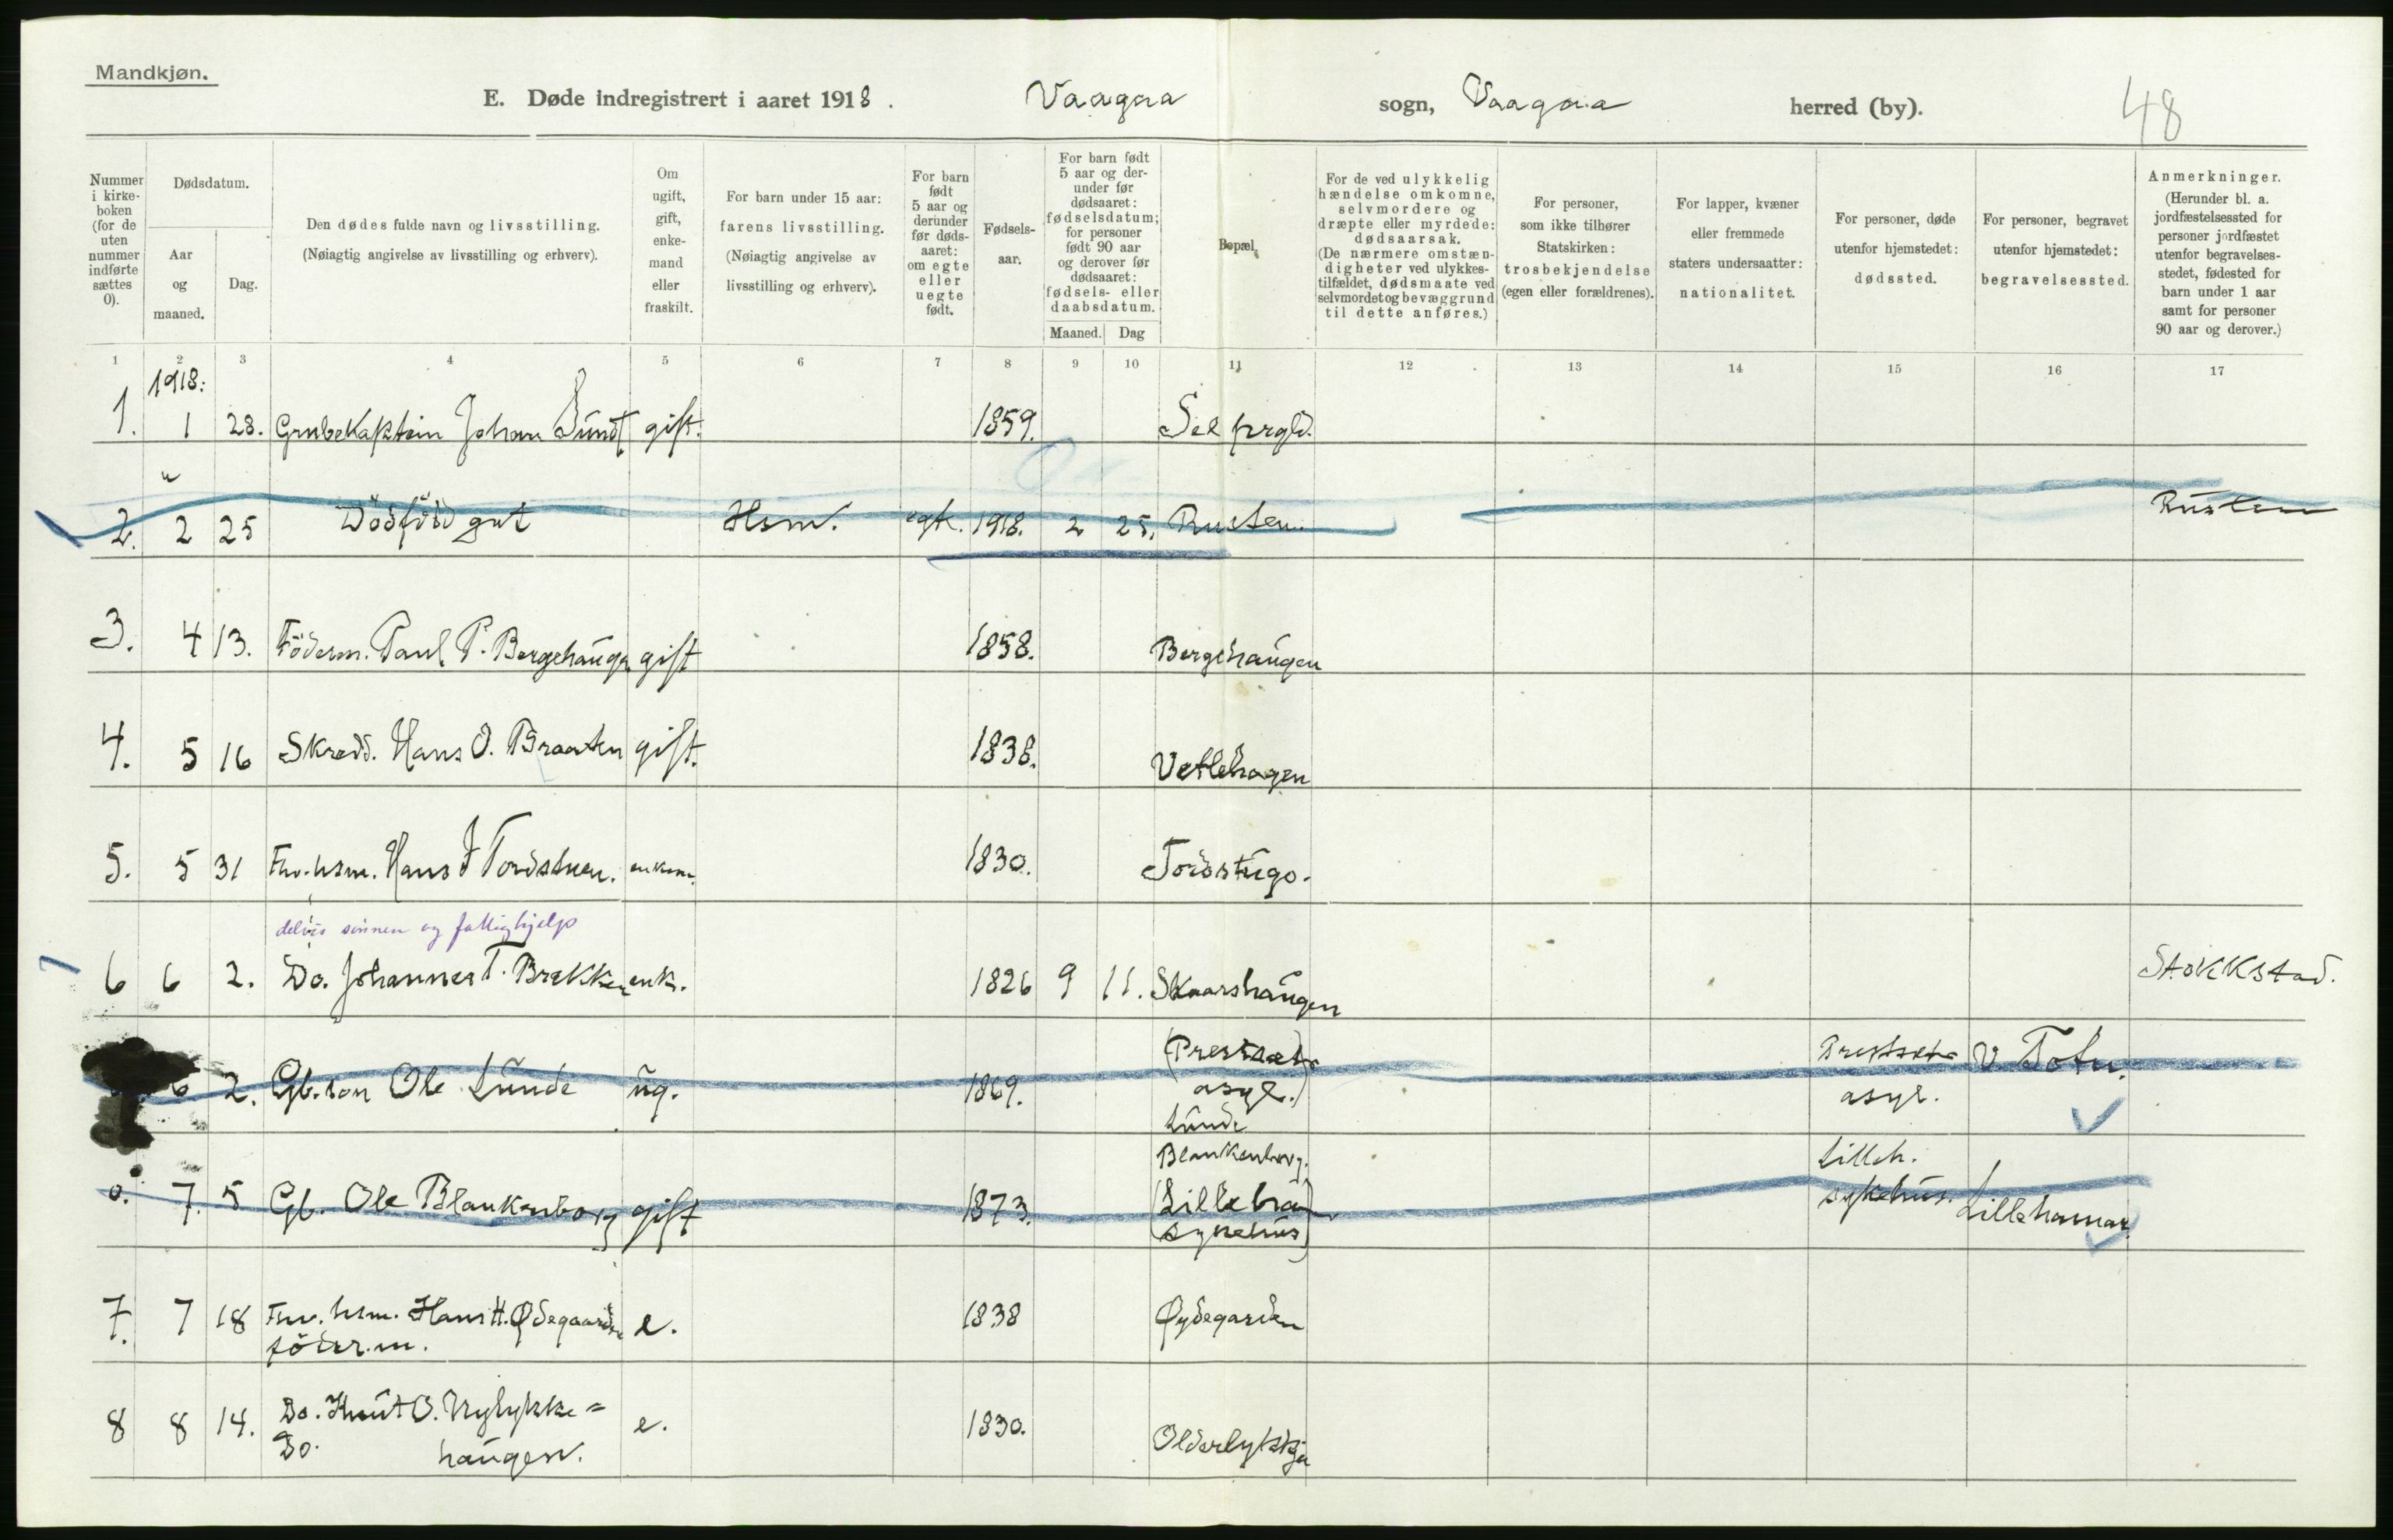 Mandkjøn.
E. Døde indregistrert i aaret 1918. Vaagaa sogn, Vaagaa herred (by). 48
Nummer i kirke-boken (for de uten nummer indførte sættes 0).
Dødsdatum.
Aar og maaned.
Dag.
Den dødes fulde navn og livsstilling.
(Nøiagtig angivelse av livsstilling og erhverv).
Om ugift, gift, enke-mand eller fraskilt.
For barn under 15 aar: farens livsstilling. (Nøiagtig angivelse av livsstilling og erhverv).
For barn født 5 aar og derunder før døds-aaret: om egte eller uegte født.
Fødsels-aar.
For barn født 5 aar og der-under før dødsaaret: fødselsdatum; for personer født 90 aar og derover før dødsaaret: fødsels- eller daabsdatum.
Maaned. Dag
Bopæl.
For de ved ulykkelig hændelse omkomne, selvmordere og dræpte eller myrdede: dødsaarsak. (De nærmere omstæn-digheter ved ulykkes-tilfældet, dødsmaate ved selvmordet og bevæggrund til dette anføres.)
For personer, som ikke tilhører Statskirken: trosbekjendelse (egen eller forældrenes).
For lapper, kvæner eller fremmede staters undersaatter: nationalitet.
For personer, døde utenfor hjemstedet: dødssted.
For personer, begravet utenfor hjemstedet: begravelsessted.
Anmerkninger. (Herunder bl. a. jordfæstelsessted for personer jordfæstet utenfor begravelses-stedet, fødested for barn under 1 aar samt for personer 90 aar og derover.)
1 2 3 4 5 6 7 8 9 10 11 12 13 14 15 16 17
1918:
1. 1 28. Grubekaptein Johan Sundt gift. 1859. Sel prgld.
"
2. 2 25 Dödfödd gut Hsm. egte. 1918. 2 25. Rusten. Rusten
3. 4 13. Föderm. Paul P. Bergehaugen gift 1858. Bergehaugen
4. 5 16 Skredd. Hans O. Braaten gift. 1838. Vetlehagen
5. 5 31 Fhv. hsm. Hans Tordstuen. enkem. 1830. Tordstugo.
delvis sönnen og fattighjelp
6 6 2. Do. Johannes T. Brekken enk. 1826 9 11. Skaarshaugen Stokkstad.
6 2. Gb. son Ole Lunde ug. 1869. (Prestsæter asyl.) Lunde Prestsæter asyl. V. Toten.
0. 7. 5 Gb. Ole Blankenborg gift 1873. Blankenborg. (Lilleham sykehus) Lilleh. sykehus. Lillehammer
7. 7 18 Fhv. hsm. Hans H. Ødegaarden e. 1838 Øydegarden
föder.m.
8 8 14. Do. Knut O. Nylykke= e. 1830. Olderlykkja
Do. haugen.